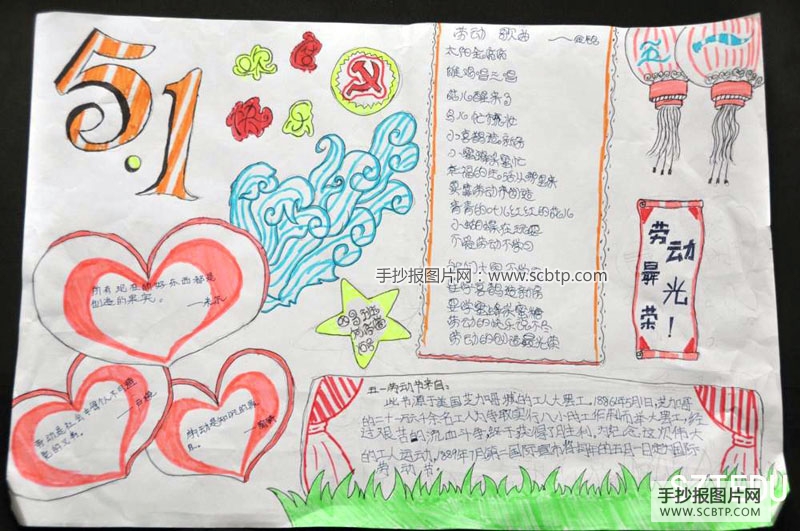 5.1
劳动 歌曲
太阳金闪闪
雄鸡唱三唱
花儿醒来了
鸟儿忙梳妆
小喜鹊造新房
小蜜蜂采蜜忙
幸福的生活从哪里来
要靠劳动来创造
青青的叶儿红红的花儿
小蝴蝶在玩耍
不爱劳动不学习
要学喜鹊造新房
要学蜜蜂采蜜糖
劳动的快乐说不尽
劳动的创造最光荣
五一
劳动
最光荣!
手抄报图片网:www.scbtp.com
所有现在的好东西都是
创造的果实。
劳动是社会中每个人不可避
免的义务。
劳动是知识的源
五一劳动节来自:
此节源于美国芝加哥城的工人大罢工,1886年5月1日,芝加哥
的二十一万六千余名工人为争取实行八小时工作制而举行大罢工,经
过艰苦的流血斗争,终于获得了胜利,为纪念这次伟大
的工人运动,1889年7月第一国际宣布将每年的五月一日定为国际
劳动节。
手抄报图片网
WWW.SCBTP.COM